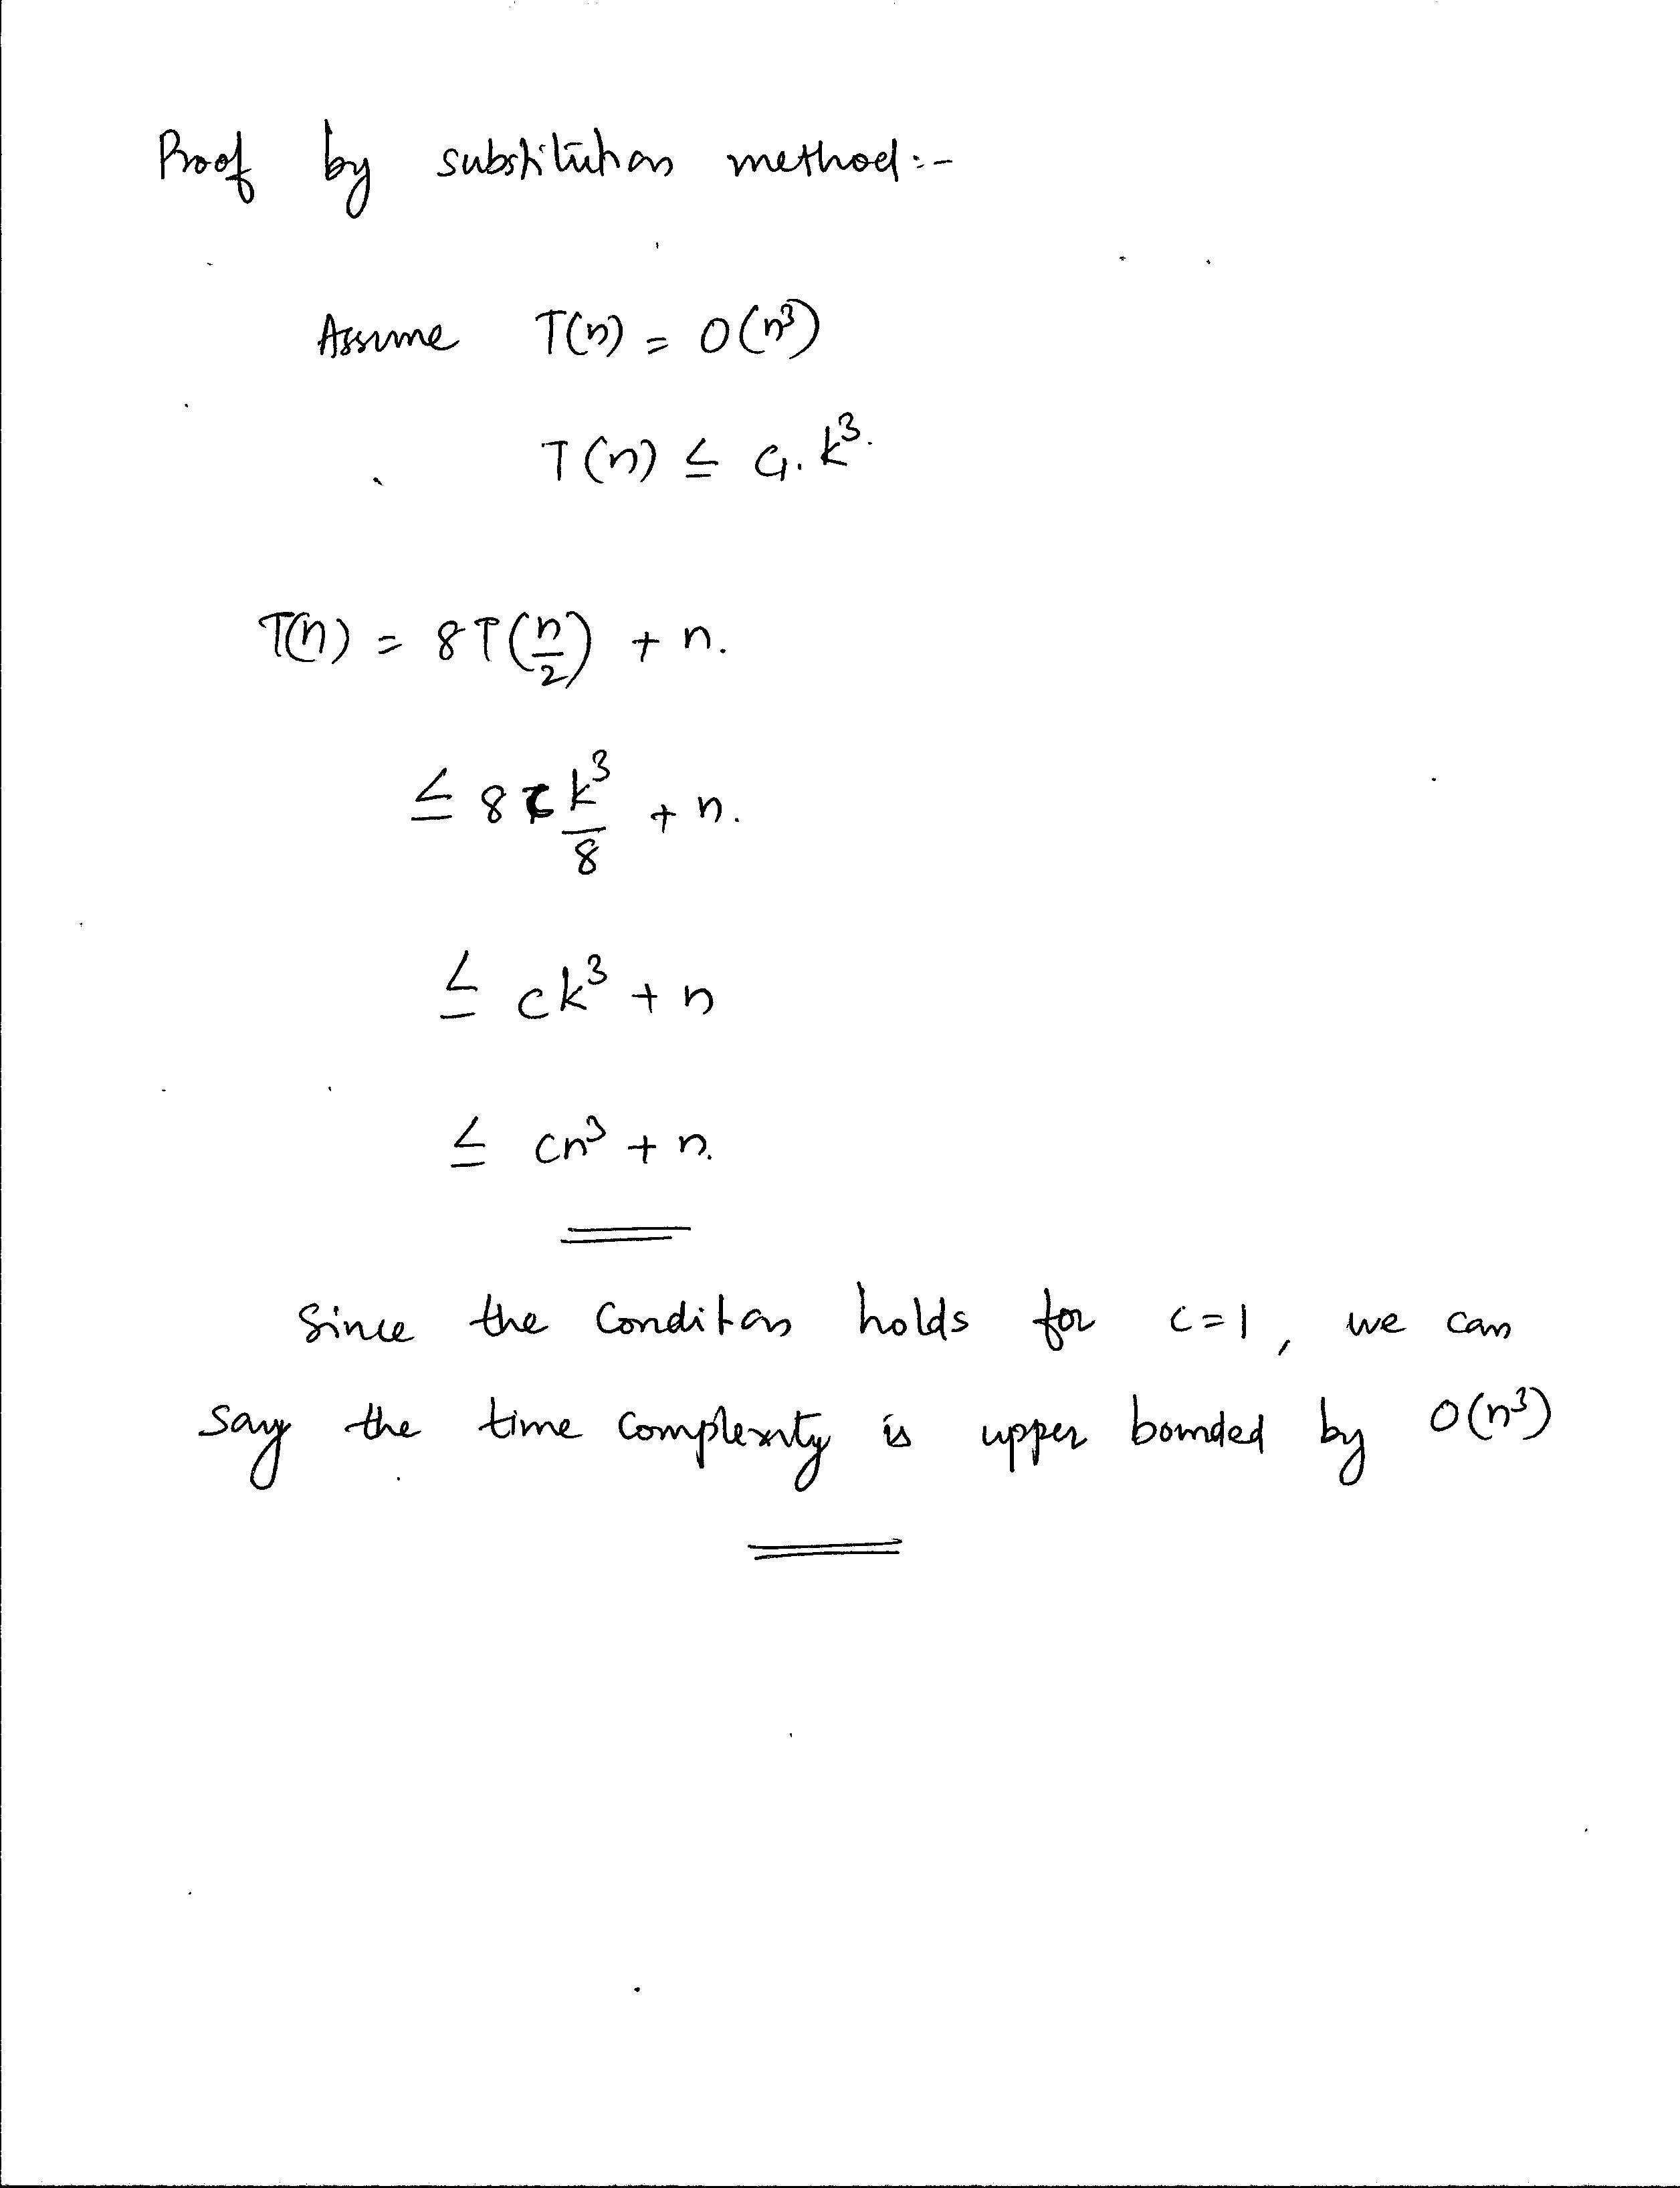 Proof by substitution method:-
Assume T(n) = O(n³)
T(n) ≤ c₁. k³.
T(n) = 8T(n/2) + n.
≤ 8c k³/8 + n.
≤ ck³ + n
≤ cn³ + n.
Since the condition holds for c=1, we can
say the time complexity is upper bounded by O(n³)